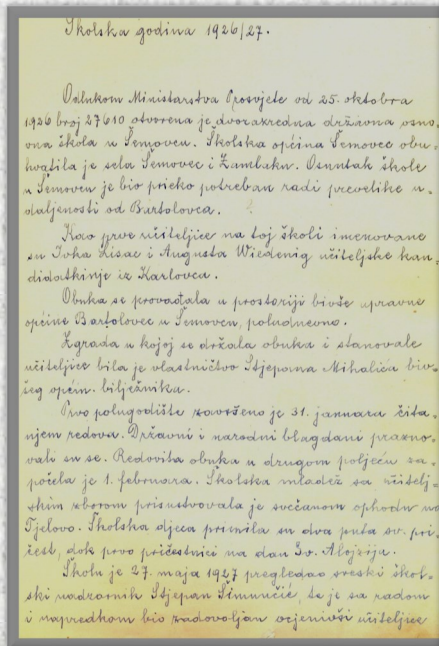 Školska godina 1926/27.
Odlukom Ministarstva Prosvjete od 25. oktobra
1926 broj 27610 otvorena je dvorazredna državna osno-
vna škola u Šemovcu. Školska općina Šemovec obu-
hvatila je sela Šemovec i Zamlaku. Osnutak škole
u Šemovcu je bio prieko potreban radi prevelike u-
daljenosti od Bartolovca.
Kao prve učiteljice na toj školi imenovane
su Ivka Lisac i Augusta Wiedenig učiteljske kan-
didatkinje iz Karlovca.
Obuka se provađala u prostoriji bivše upravne
općine Bartolovec u Šemovcu, poludnevno.
Zgrada u kojoj se držala obuka i stanovale
učiteljice bila je vlastničtvo Stjepana Mihalića biv-
šeg općin. bilježnika.
Prvo polugodište završeno je 31. januara čita-
njem redova. Državni i narodni blagdani prazno-
vali su se. Redovita obuka u drugom poljeću za-
počela je 1. februara. Školska mladež sa učitelj-
skim zborom prisustvovala je svečanom ophodu na
Tjelovo. Školska djeca primila su dva puta sv. pri-
čest, dok prvo pričestnici na dan Sv. Alojzija.
Školu je 27. maja 1927 pregledao sreski škol-
ski nadzornik Stjepan Šimunčić, te je sa radom
i napredkom bio zadovoljan ocjenivši učiteljice